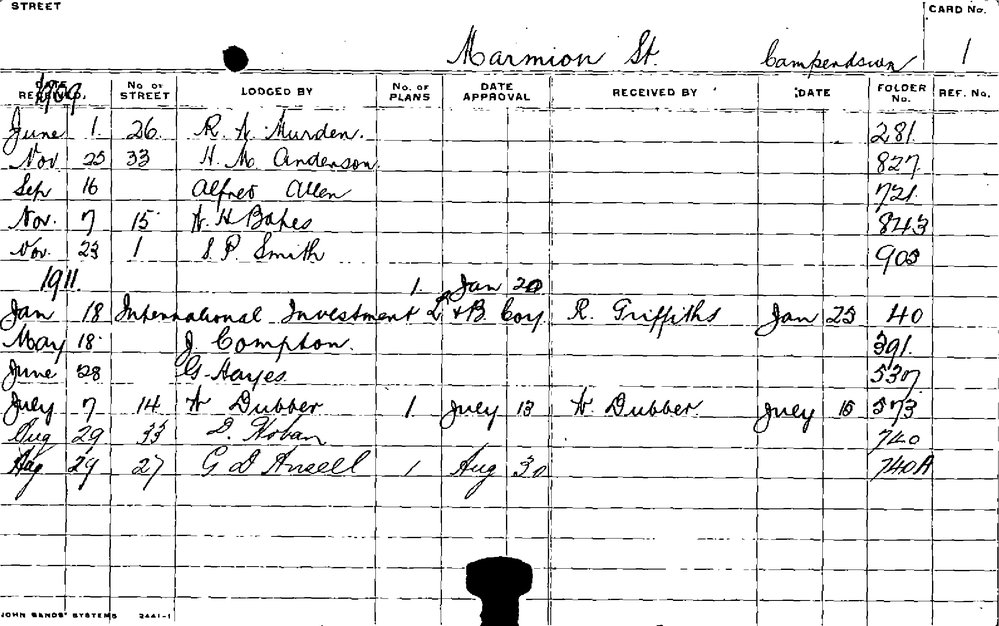 STREET
CARD No.
Marmion St. Camperdown 1
DATE RECEIVED. No OF STREET LODGED BY No. OF PLANS DATE APPROVAL RECEIVED BY DATE FOLDER No. REF. No.
1909
June 1. 26. R. A. Murden. 281.
Nov 25 33 H. M. Anderson. 827.
Sep 16 Alfred Allen 721.
Nov. 7 15 H Bakes 843
Nov. 23 1 S. P. Smith 903
1911. 1. Jan 20
Jan 18 International Investment L & B. Coy. R. Griffiths Jan 23 40
May 18. J. Compton. 391.
June 28 G. Hayes. 537
July 7 14 W Dubber 1. July 13 W Dubber July 15 573
Aug 29 33 D. Hoban 740
Aug 29 27 G D Ansell 1 Aug 30 740A
JOHN SANDS' SYSTEMS 2441-1